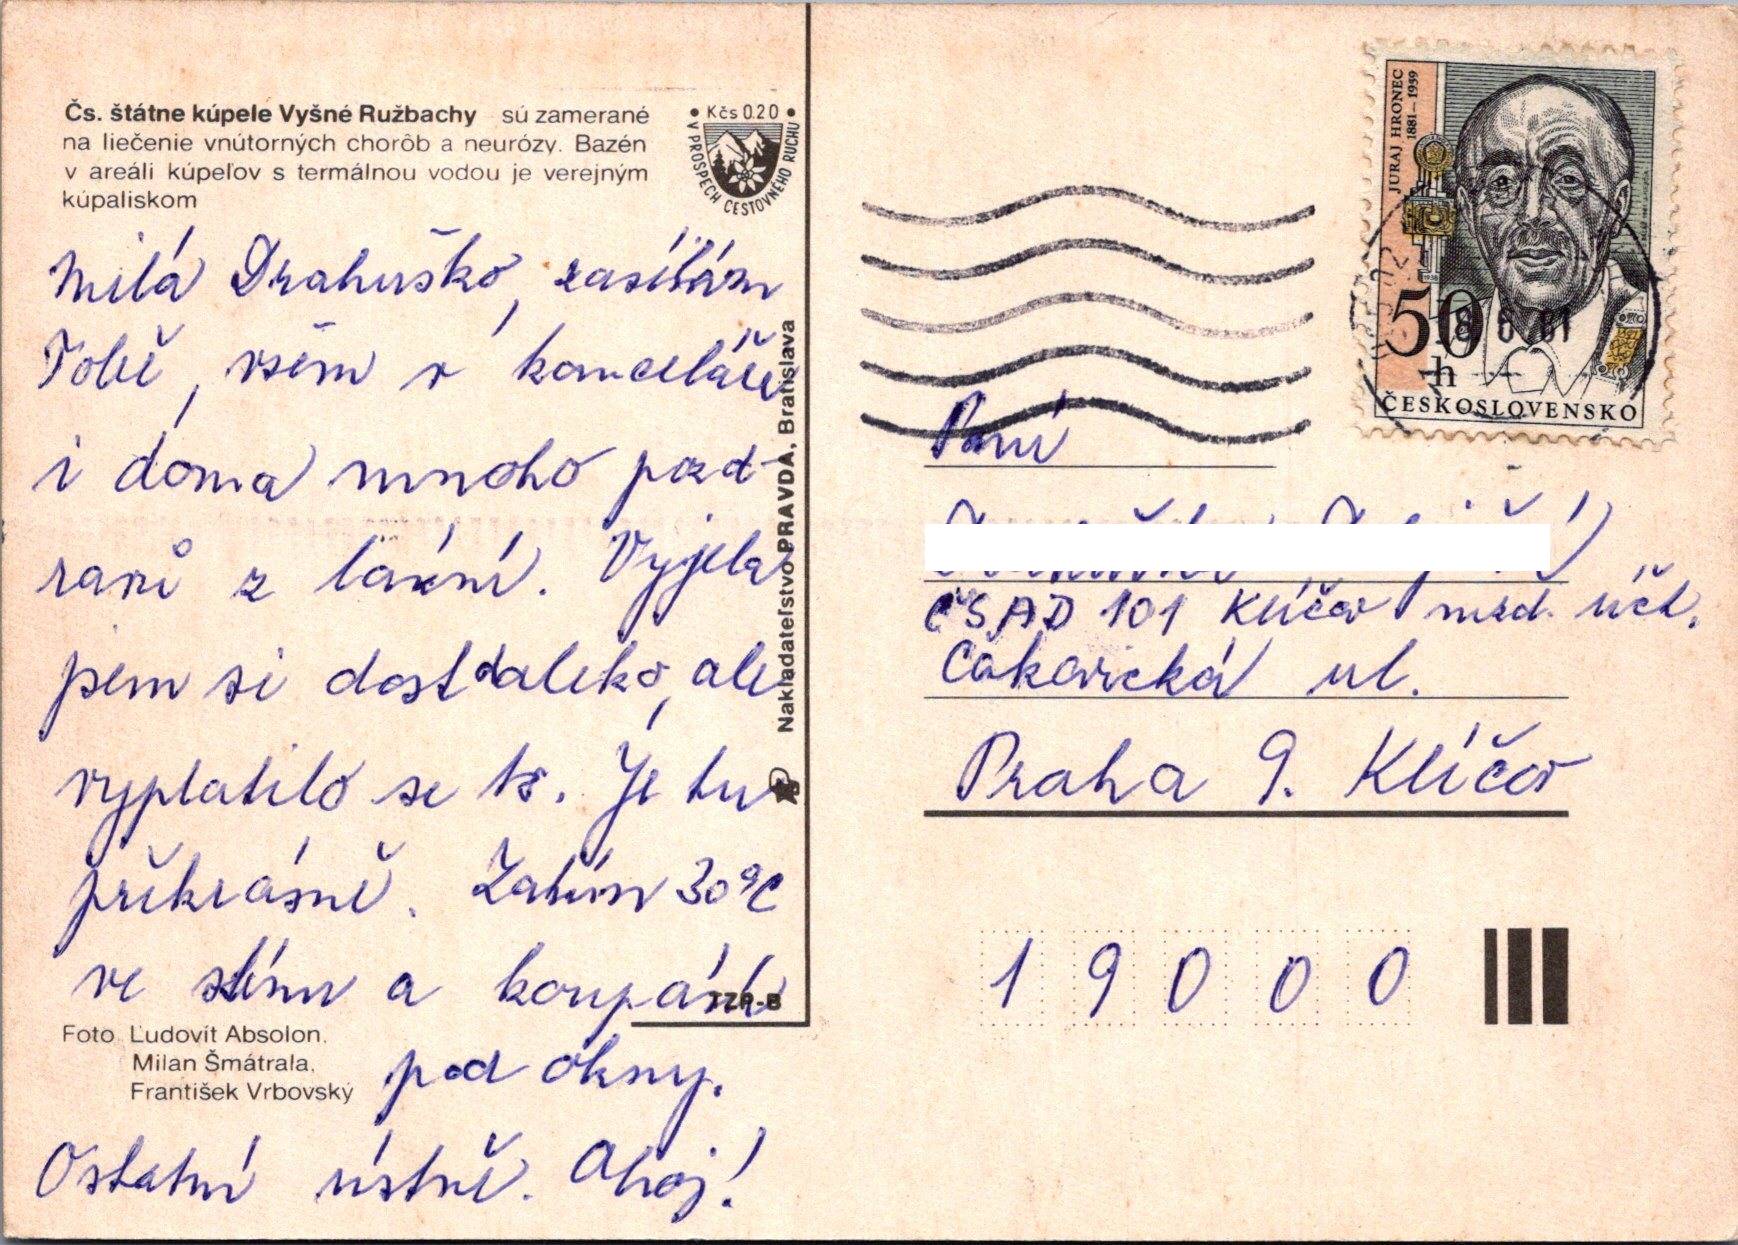 Čs. štátne kúpele Vyšné Ružbachy sú zamerané
na liečenie vnútorných chorôb a neurózy. Bazén
v areáli kúpeľov s termálnou vodou je verejným
kúpaliskom
• Kčs 0.20 •
V PROSPECH CESTOVNÉHO RUCHU
Milá Drahuško, zasílám
Tobě, všem v kanceláři
i doma mnoho pozd-
ravů z lázní. Vyjela
jsem si dost daleko, ale
vyplatilo se to. Je tu
překrásně. Zatím 30°C
ve stínu a koupání
pod okny.
Ostatní ústně. Ahoj!
Foto Ľudovít Absolon,
Milan Šmátrala,
František Vrbovský
Nakladateľstvo PRAVDA, Bratislava
TZP-B
JURAJ HRONEC
1881–1959
50
h
ČESKOSLOVENSKO
Paní
ČSAD 101 Klíčov mzd. účt.
Čakovická ul.
Praha 9. Klíčov
19000